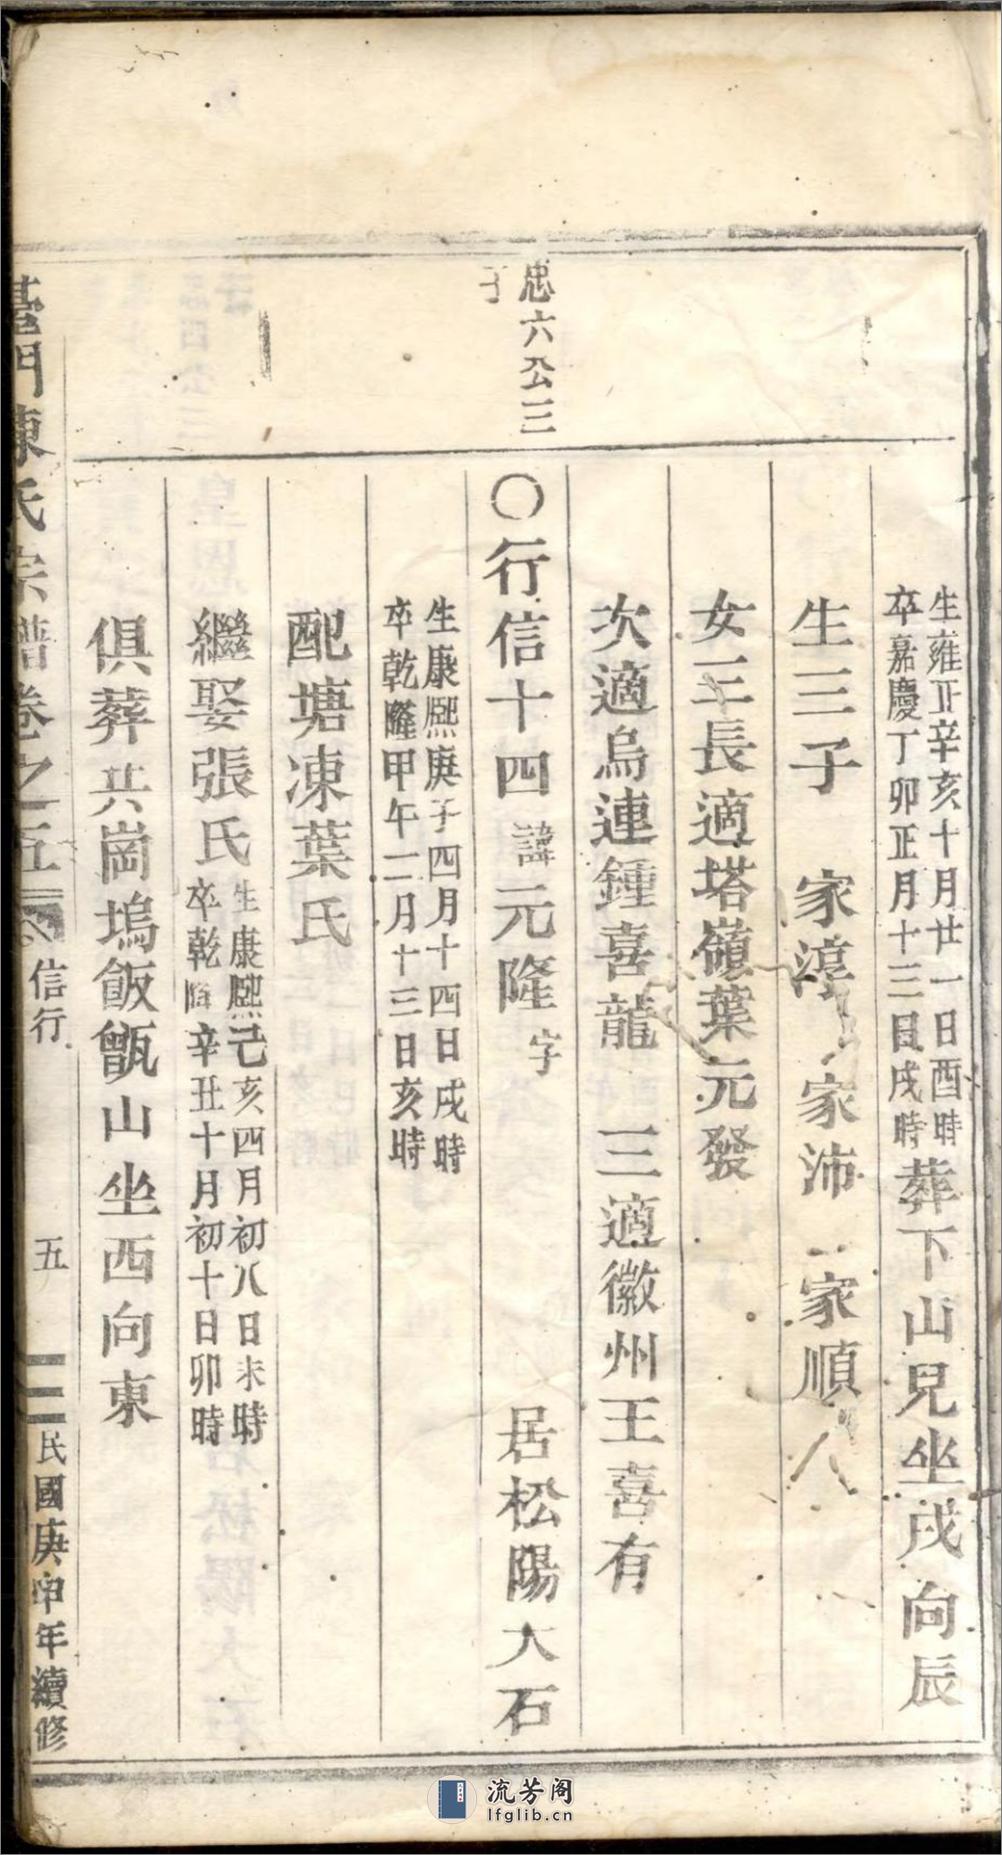 生雍正辛亥十月廿一日酉時
卒嘉慶丁卯正月十三日戌時
葬下山兒坐戌向辰
生三子 家淳 家沛 家順
女三長適塔嶺葉元發
次適烏連鍾喜龍 三適徽州王喜有
忠六公三
子
〇行信十四諱元隆字 居松陽大石
生康熙庚子四月十四日戌時
卒乾隆甲午二月十三日亥時
配塘凍葉氏
繼娶張氏
生康熙己亥四月初八日未時
卒乾隆辛丑十月初十日卯時
俱葬共崗塢飯甑山坐西向東
臺門陳氏宗譜卷之五 信行 五 民國庚申年續修
流芳阁
lfglib.cn